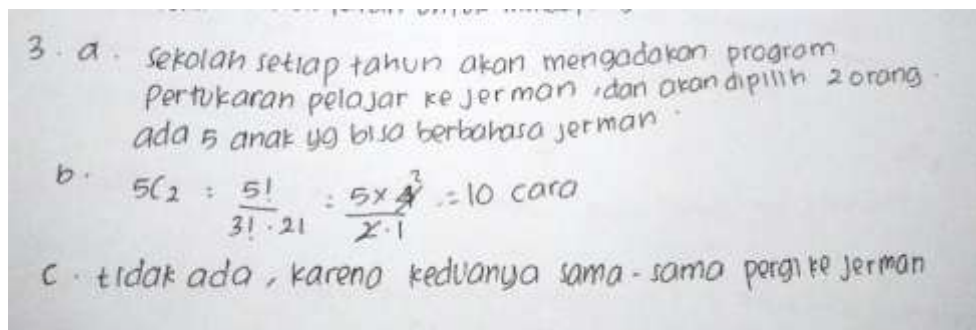 3. a. Sekolah setiap tahun akan mengadakan program
Pertukaran pelajar ke Jerman, dan akan dipilih 2 orang.
ada 5 anak yg bisa berbahasa jerman.
b. 5C2 : 5! / 3! . 2! : 5 x 4 2 / 2 . 1 = 10 cara
c. tidak ada, karena keduanya sama-sama pergi ke Jerman